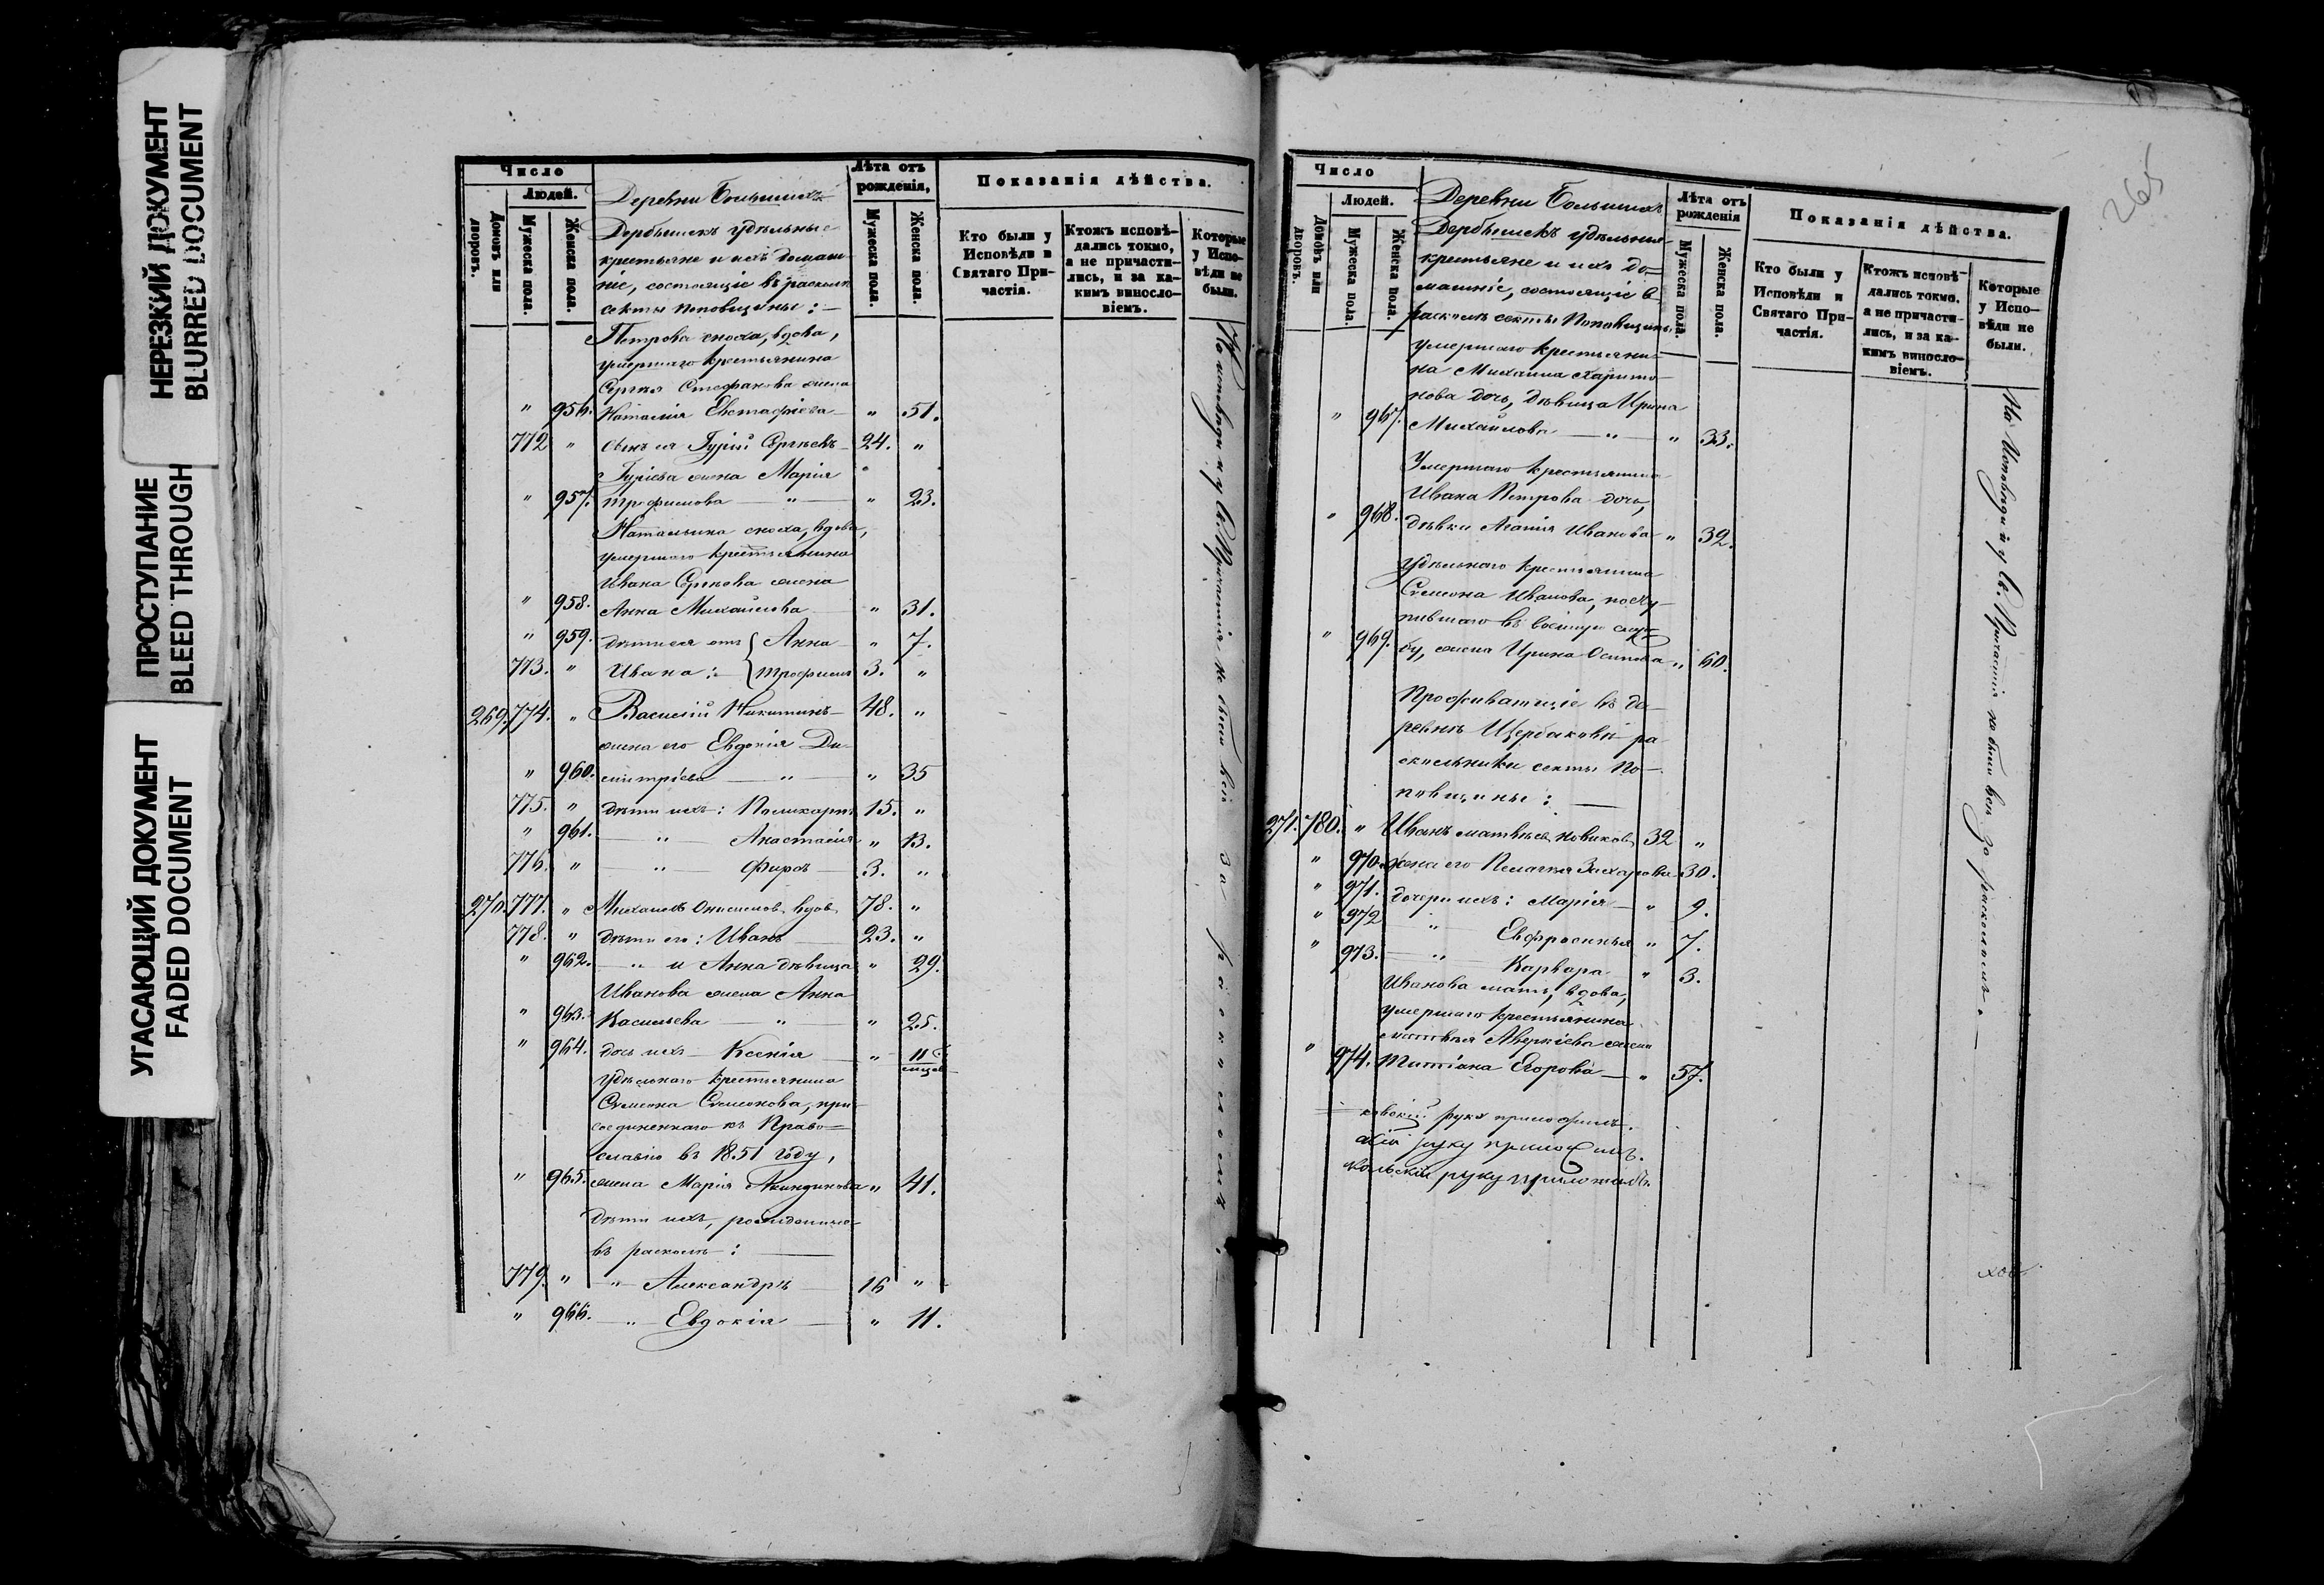 НЕРЕЗКИЙ ДОКУМЕНТ
BLURRED DOCUMENT
ПРОСТУПАНИЕ
BLEED THROUGH
УГАСАЮЩИЙ ДОКУМЕНТ
FADED DOCUMENT
Число
Людей.
Домовъ или дворовъ.
Мужеска пола.
Женска пола.
Деревни Большихъ
Дербышекъ удѣльные
крестьяне и ихъ домаш-
ніе, состоящіе въ расколѣ
секты поповщины:
Лѣта отъ рожденія,
Мужеска пола.
Женска пола.
Показанія дѣйства.
Кто были у Исповѣди и Святаго Причастія.
Ктожъ исповѣдались токмо, а не причастились, и за какимъ винословіемъ.
Которые у Исповѣди не были.
Петрова сноха, вдова,
умершаго крестьянина
Сергѣя Стефанова жена
" 956. Наталія Евстафіева " 51.
772 " Сынъ ея Гурій Сергѣевъ 24. "
Гуріева жена Марія
" 957. Трофимова " " 23.
Натальина сноха, вдова,
умершаго крестьянина
Ивана Сергѣева жена
" 958. Анна Михайлова " 31.
" 959. дѣти ея отъ Анна " 7.
773. " Ивана: Трофимъ 3. "
269. 774. " Василій Никитинъ 48. "
жена его Евдокія Ди-
" 960. митріева " " 35
775. " дѣти ихъ: Поликарпъ 15. "
" 961. " Анастасія " 13.
776. " " Фирсъ 3. "
270. 777. " Михаилъ Онисимовъ, вдовъ 78. "
778. " дѣти его: Иванъ 23. "
" 962. " и Анна дѣвица " 29.
Иванова жена Анна
" 963. Васильева " " 25.
" 964. дочь ихъ Ксенія " 11
удѣльнаго крестьянина
Симеона Симеонова, при-
соединеннаго къ Право-
славію въ 1851 году,
" 965. жена Марія Акиндинова " 41.
дѣти ихъ, рожденные
въ расколѣ:
779. " " Александръ 16 "
" 966. " Евдокія " 11.
На Исповѣди и у Св. Причастія не были всѣ за расколомъ.
265
Число
Людей.
Домовъ или дворовъ.
Мужеска пола.
Женска пола.
Деревни Большихъ
Дербышекъ удѣльные
крестьяне и ихъ до-
машніе, состоящіе въ
расколѣ секты Поповщины:
Лѣта отъ рожденія
Мужеска пола.
Женска пола.
Показанія дѣйства.
Кто были у Исповѣди и Святаго Причастія.
Ктожъ исповѣдались токмо, а не причастились, и за какимъ винословіемъ.
Которые у Исповѣди не были.
умершаго крестьяни-
на Михаила Харито-
нова дочь, дѣвица Ирина
" 967. Михайлова " " 33.
Умершаго крестьянина
Ивана Петрова дочь,
" 968. дѣвка Агапія Иванова " 32.
удѣльнаго крестьянина
Симеона Иванова, посту-
пившаго въ военную служ-
" 969. бу, жена Ирина Осипова " 60.
Проживающіе въ де-
ревнѣ Щербаковѣ ра-
скольники секты По-
повщины:
271. 780. " Иванъ Матвѣевъ Новиковъ 32 "
" 970. жена его Пелагея Захарова 30.
" 971. дочери ихъ: Марія " 9.
" 972 " Евфросинья " 7.
" 973. " Варвара " 3.
Иванова мать, вдова,
умершаго крестьянина
Матвѣя Аверкіева жена
" 974. Татіана Егорова " 57.
руку приложилъ.
руку приложилъ.
руку приложилъ.
На Исповѣди и у Св. Причастія не были всѣ за расколомъ.